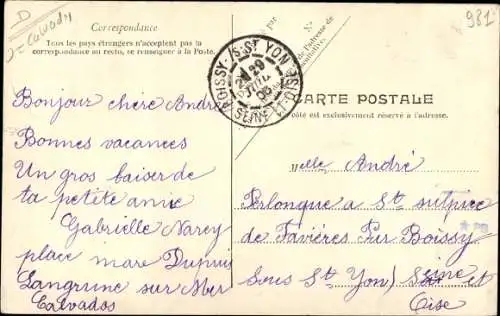 D
Calvados
981
Correspondance
Tous les pays étrangers n'acceptent pas la
correspondance au recto, se renseigner à la Poste.
Bonjour chère André
Bonnes vacances
Un gros baiser de
ta petite amie
Gabrielle Narcy
place mare Dupuis
Langrune sur Mer
Calvados
BOISSY-S-ST YON
29
JUIL
05
SEINE-ET-OISE
CARTE POSTALE
côté est exclusivement réservé à l'adresse.
Melle André
Perlonque a St sulpice
de Favières Par Boissy
Sous St Yon) Seine et
Oise